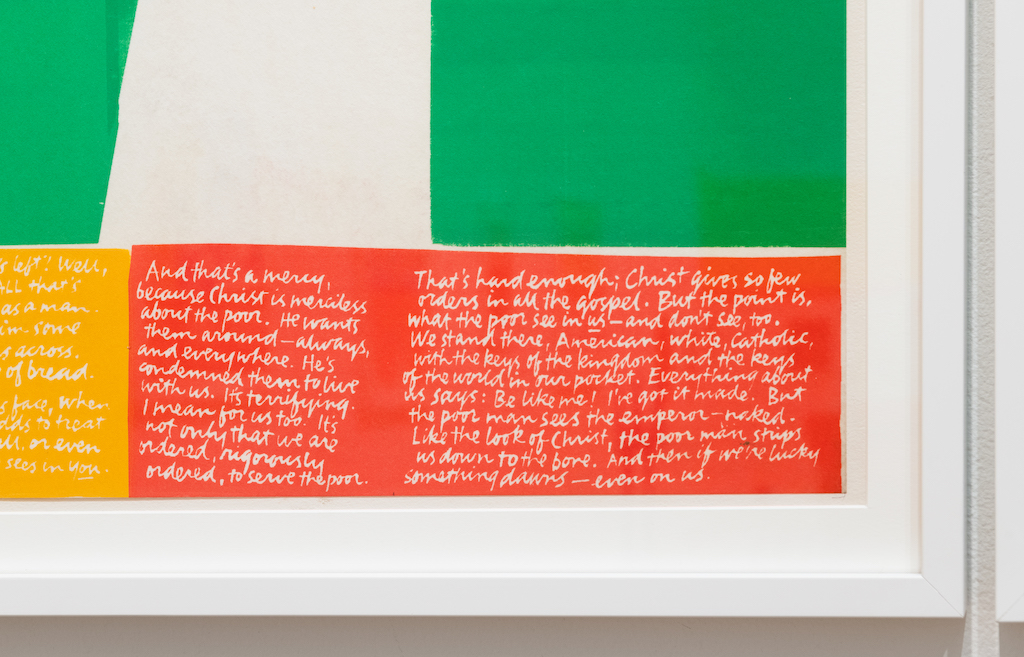 s left? Well,
ALL that's
as a man.
im some
s across.
of bread.
s face, when
odds to treat
all. or even
sees in you.
And that's a mercy,
because Christ is merciless
about the poor. He wants
them around—always,
and everywhere. He's
condemned them to live
with us. It's terrifying.
I mean for us too. It's
not only that we are
ordered, rigorously
ordered, to serve the poor.
That's hard enough; Christ gives so few
orders in all the gospel. But the point is,
what the poor see in us—and don't see, too.
We stand there, American, white, Catholic,
with the keys of the kingdom and the keys
of the world in our pocket. Everything about
us says: Be like me! I've got it made. But
the poor man sees the emperor—naked.
Like the look of Christ, the poor man strips
us down to the bone. And then if we're lucky
something dawns—even on us.